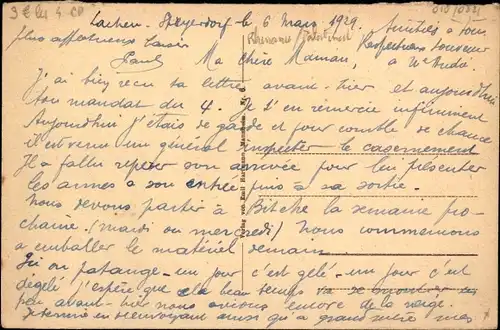 3€ les 4 CD
Lachen-Speyerdorf le 6 Mars 1929
Amitiés à tous
Plus affectueux baiser
Respectueux souvenir
Paul
Ma chère Maman,
à Mr André
J'ai bien reçu ta lettre avant-hier et aujourd'hui
ton mandat du 4. Je t'en remercie infiniment
Aujourd'hui j'étais de garde et pour comble de chance
il est venu un général inspecter le casernement
Il a fallu répéter son arrivée pour lui présenter
les armes à son entrée puis à sa sortie.
Nous devons partir à Bitche la semaine pro-
chaine (mardi ou mercredi) Nous commençons
à emballer le matériel demain.
Ici on patauge - un jour c'est gelé - un jour c'est
dégelé j'espère que le beau temps va se montrer un
peu avant-hier nous avions encore de la neige.
Je termine en t'envoyant ainsi qu'à grand mère mes
Verlag von Emil Hartmann, Mannheim